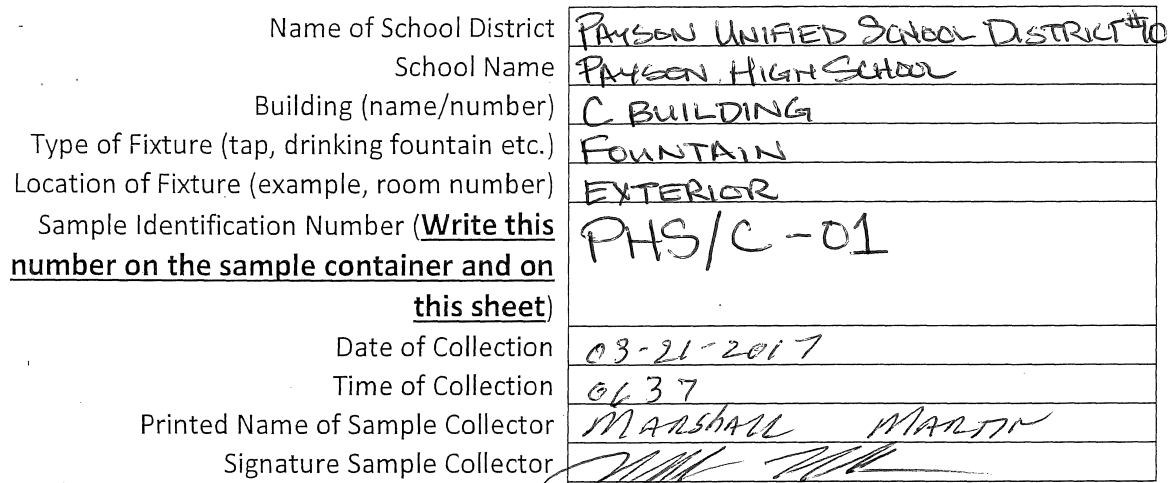 Name of School District PAYSON UNIFIED SCHOOL DISTRICT #10
School Name PAYSON HIGH SCHOOL
Building (name/number) C BUILDING
Type of Fixture (tap, drinking fountain etc.) FOUNTAIN
Location of Fixture (example, room number) EXTERIOR
Sample Identification Number (Write this PHS/C-01
number on the sample container and on
this sheet)
Date of Collection 03-21-2017
Time of Collection 0637
Printed Name of Sample Collector MARSHALL MARTIN
Signature Sample Collector